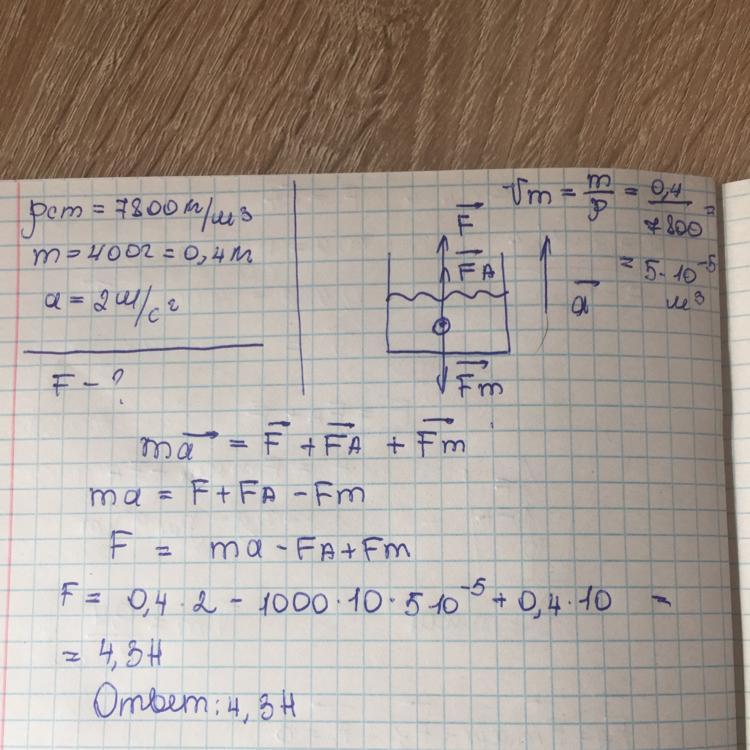 ρст = 7800 кг/м³
m = 400г = 0,4 кг
a = 2 м/с²
F - ?
F
FA
Fт
a
Vт = m/ρ = 0,4/7800 =
= 5·10⁻⁵ м³
ma = F + FA + Fт
ma = F + FA - Fт
F = ma - FA + Fт
F = 0,4 · 2 - 1000 · 10 · 5 10⁻⁵ + 0,4 · 10 =
= 4,3 Н
Ответ: 4,3 Н